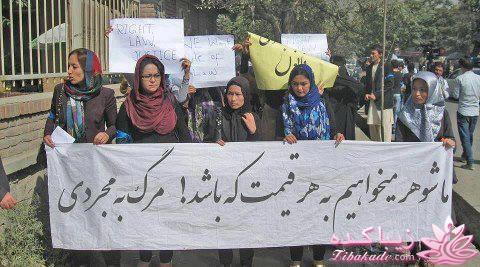 RIGHT,
LAW,
JUSTICE
WE
of
Law
قانون
ما شوهر میخواهیم به هر قیمت که باشد! مرگ به مجردی
زیباکده
Zibakade.com